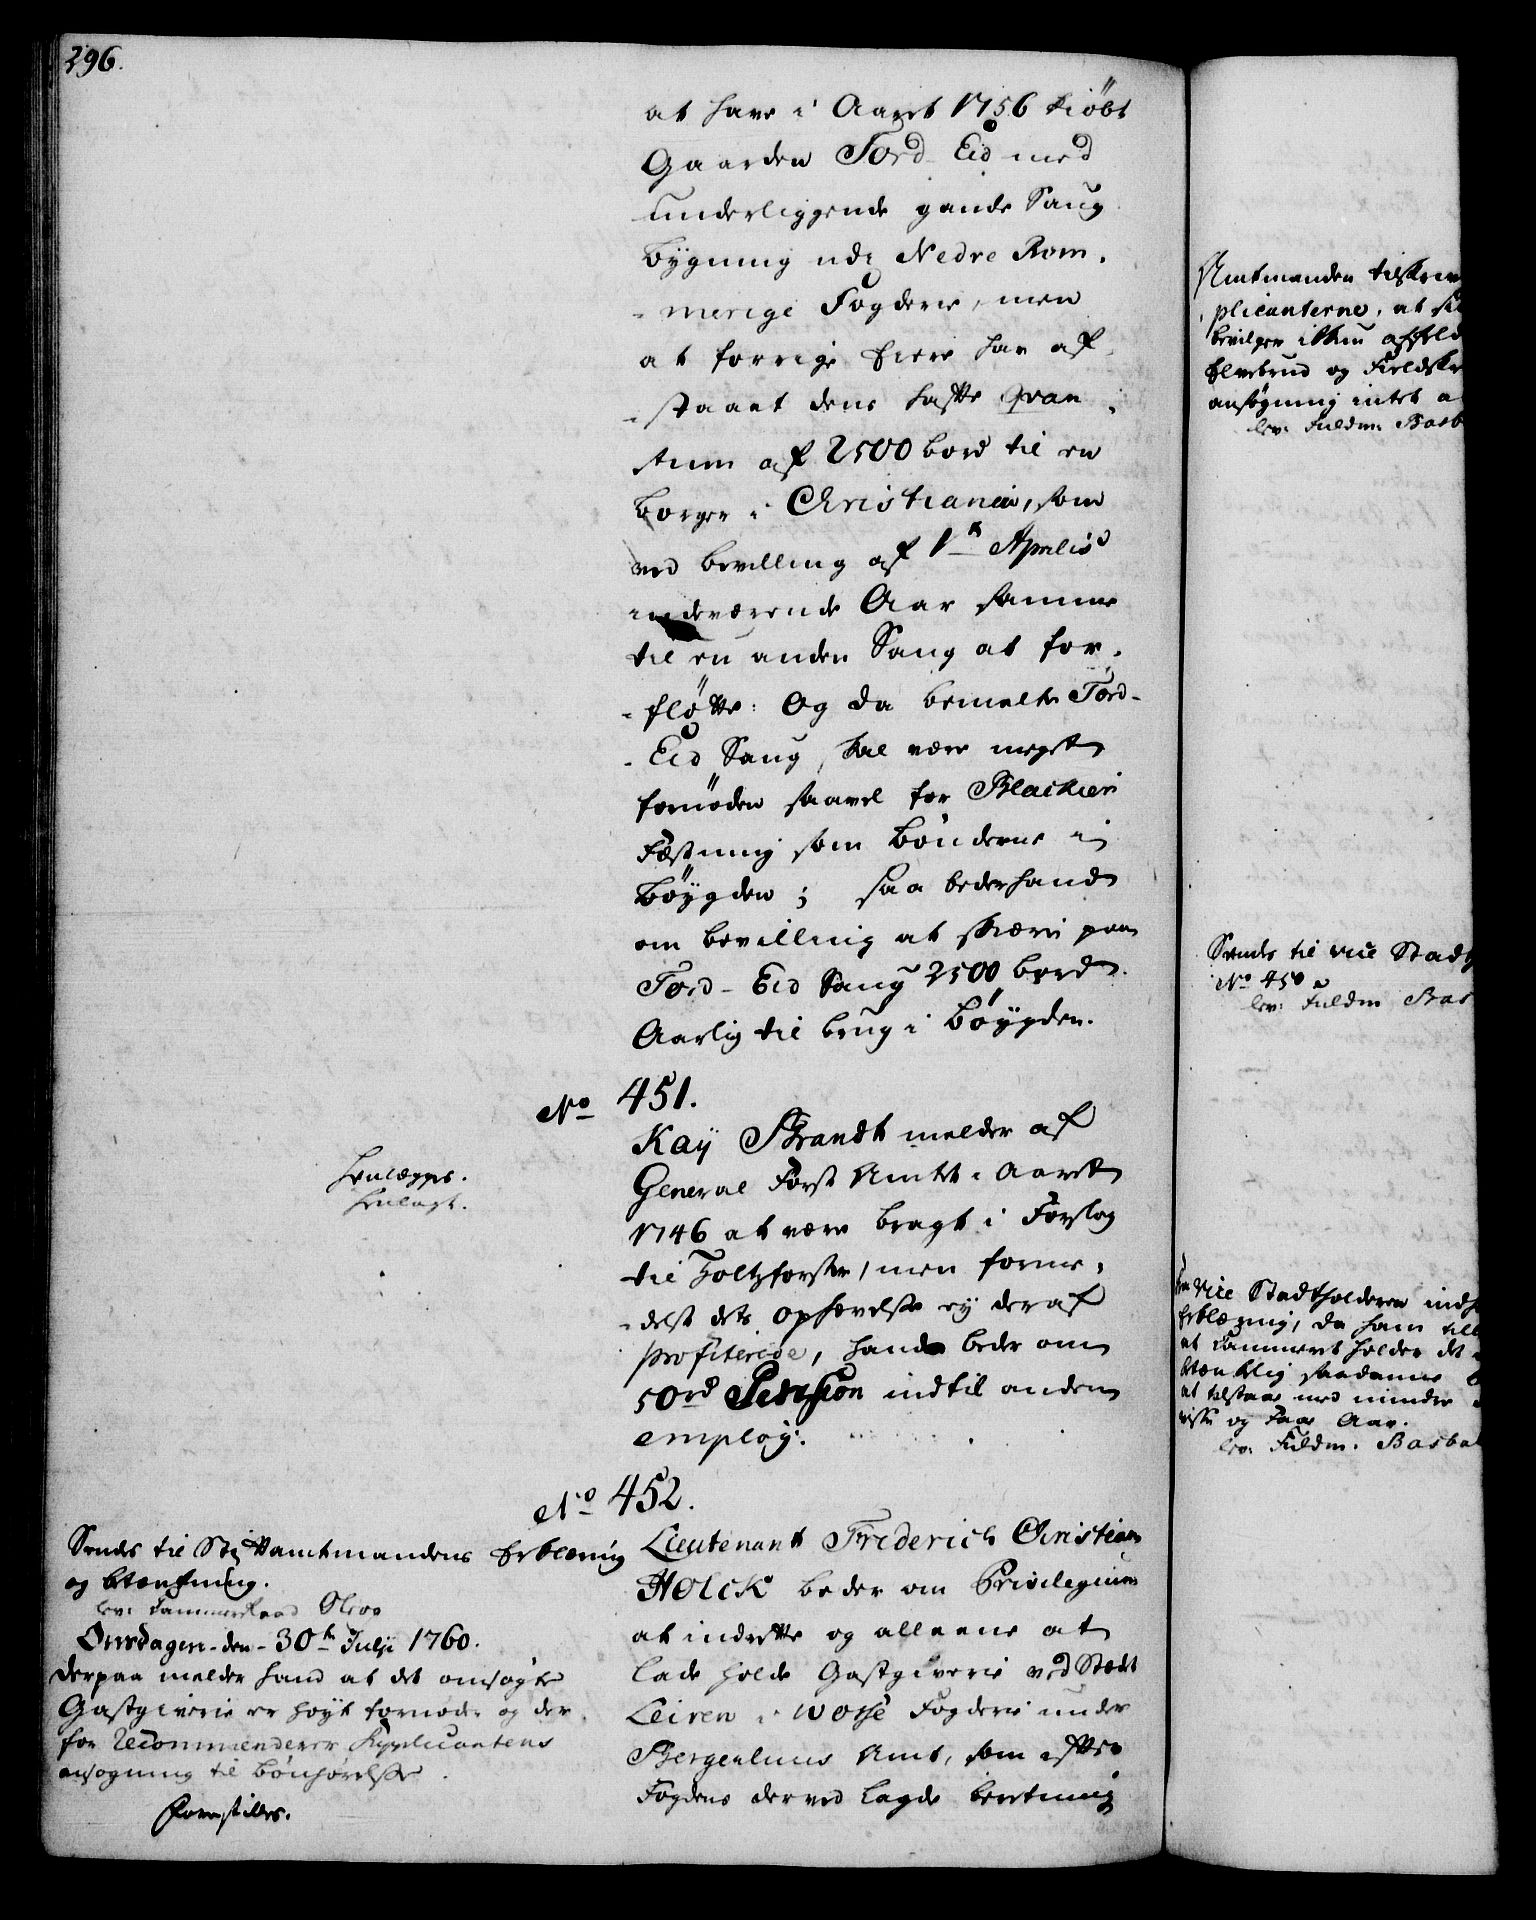 296.
at have i Aaret 1756 kiöbt
Gaarden Tord Eid med
underliggende gande Saug
bÿgning udi Nedre Rom,
merige Fogderie, men
at forrige Eiere har af
staaet dens hafte Qvan,
tum af 2500 bord til en
borger i Christiania, som
ved bevilling af 1te Aprilis
indeværende Aar samme
til en anden Saug at for,
flötte: Og da bemelte Tord-
Eid Saug, skal være meget
fornöden saavel for Blackier
Fæstning som bönderne i
böÿgden; saa beder hand
om bevilling at skiære paa
Tord-Eid Saug 2500 bord
Aarlig til brug i böÿgden.
No 451.
Kaÿ Brandt melder af
General Forst Amtet i Aaret
1746 at være bragt i Forslag
til Holtzforster, men forme,
delst dets ophævelse eÿ deraf
profiterede, hand beder om
50 rd Pension indtil anden
emploÿ.
Henlægges.
henlagt.
No 452.
Lieutenant Friderich Christian
Holck beder om Privilegium
at indrette og alleene at
lade holde Gastgiverie ved Stædet
Leiren i Wosse Fogderie under
Bergenhuus Amt, som efter
Fogdens derved lagde beretning
Sendes til Stiftamtmandens Erklæring
og betænkning.
lev: Cammerraad
Onsdagen den 30te Julÿ 1760.
derpaa melder hand at det ansøgte
Gastgiverie er höyt fornöden og der
for recommenderer Supplicantens
ansøgning til bönhörelse.
Forestilles.
Amtmanden tilskriv
plicanterne, at
bevilges
og Field
ansøgning intet
lev: Fuldm. Basb
Sendes til vice Stadt
No 450
lev: Fuldm Bas
vice Stadtholderen indh
Erklæring, da ham till
at Cammeret holder det
betænkelig saadanne
at tilstaae med mindre
visse og Faae Aar.
lev: Fuldm. Basbal